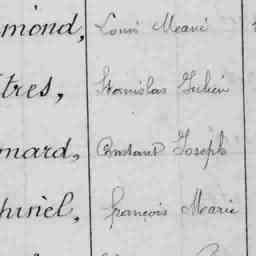 mond, Louis Mearie
tres, Stanislas Julien
mard, Constant Joseph
huriel, françois Marie